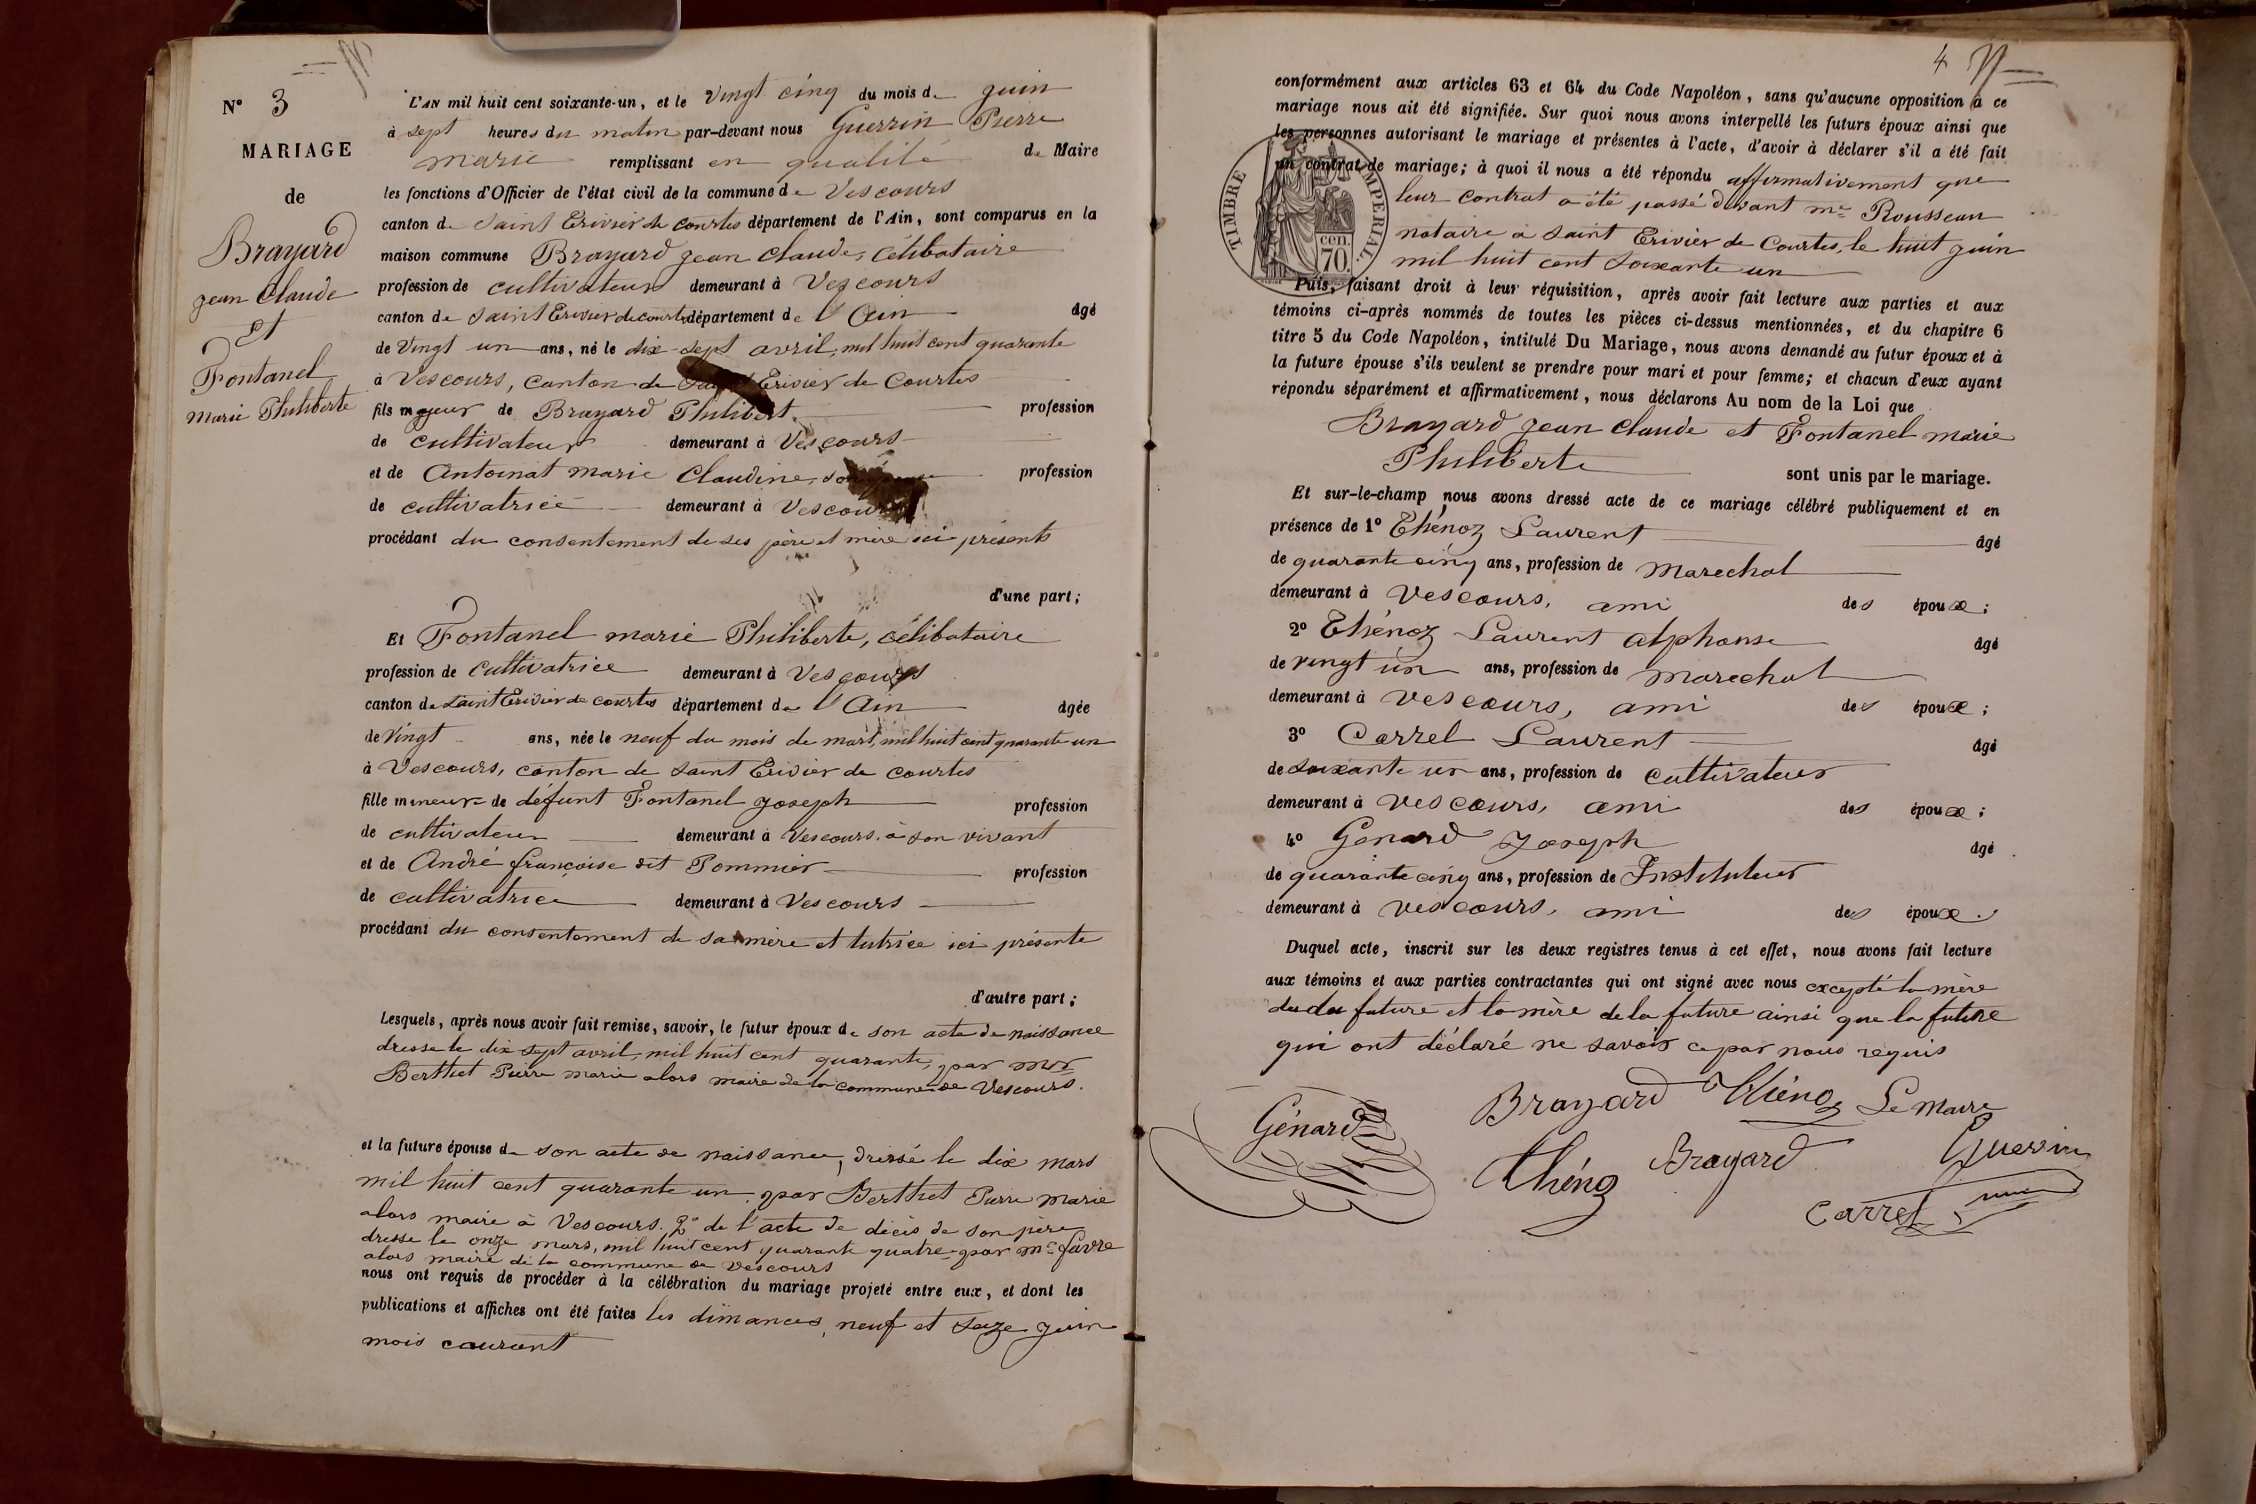 N° 3
MARIAGE
de
Brayard
jean Claude
et
Fontanel
marie Philiberte
L'AN mil huit cent soixante-un, et le vingt cinq du mois de juin
à sept heures du matin par-devant nous Guerrin Pierre
marie remplissant en qualité de Maire
les fonctions d'Officier de l'état civil de la commune de Vescours
canton de Saint Trivier de Courtes département de l'Ain, sont comparus en la
maison commune Brayard jean Claude, célibataire
profession de cultivateur demeurant à Vescours
canton de Saint Trivier de Courtes département de l'Ain âgé
de vingt un ans, né le dix-sept avril, mil huit cent quarante
à Vescours, canton de Saint Trivier de Courtes
fils majeur de Brayard Philibert profession
de cultivateur demeurant à Vescours
et de Antoinat marie Claudine, son épouse profession
de cultivatrice demeurant à Vescours
procédant du consentement de ses père et mère ici présents
d'une part;
Et Fontanel marie Philiberte, célibataire
profession de cultivatrice demeurant à Vescours
canton de Saint Trivier de Courtes département de l'Ain âgée
de vingt ans, née le neuf du mois de mars, mil huit cent quarante un
à Vescours, canton de Saint Trivier de Courtes
fille mineure de défunt Fontanel joseph profession
de cultivateur demeurant à Vescours à son vivant
et de André françoise dit Pommier profession
de cultivatrice demeurant à Vescours
procédant du consentement de sa mère et tutrice ici présente
d'autre part;
Lesquels, après nous avoir fait remise, savoir, le futur époux de son acte de naissance
dressé le dix sept avril, mil huit cent quarante, par mr
Berthet Pierre marie alors maire de la commune de Vescours.
et la future épouse de son acte de naissance, dressé le dix mars
mil huit cent quarante un, par Berthet Pierre Marie
alors maire à Vescours. 2° de l'acte de décès de son père
dressé le onze mars, mil huit cent quarante quatre par mr favre
alors maire de la commune de Vescours
nous ont requis de procéder à la célébration du mariage projeté entre eux, et dont les
publications et affiches ont été faites les dimances, neuf et seize juin
mois courant
4
conformément aux articles 63 et 64 du Code Napoléon, sans qu'aucune opposition à ce
mariage nous ait été signifiée. Sur quoi nous avons interpellé les futurs époux ainsi que
les personnes autorisant le mariage et présentes à l'acte, d'avoir à déclarer s'il a été fait
un contrat de mariage; à quoi il nous a été répondu affirmativement que
leur contrat a été passé devant me Rousseau
notaire à Saint Trivier de Courtes, le huit juin
mil huit cent soixante un
TIMBRE IMPERIAL.
cen.
70.
Puis, faisant droit à leur réquisition, après avoir fait lecture aux parties et aux
témoins ci-après nommés de toutes les pièces ci-dessus mentionnées, et du chapitre 6
titre 5 du Code Napoléon, intitulé Du Mariage, nous avons demandé au futur époux et à
la future épouse s'ils veulent se prendre pour mari et pour femme; et chacun d'eux ayant
répondu séparément et affirmativement, nous déclarons Au nom de la Loi que
Brayard jean claude et Fontanel marie
Philiberte sont unis par le mariage.
Et sur-le-champ nous avons dressé acte de ce mariage célébré publiquement et en
présence de 1° Thénoz Laurent âgé
de quarante cinq ans, profession de marechal
demeurant à Vescours, ami des époux;
2° Thénoz Laurent alphonse âgé
de vingt un ans, profession de marechal
demeurant à Vescours, ami des époux;
3° Carrel Laurent âgé
de soixante un ans, profession de cultivateur
demeurant à Vescours, ami des époux;
4° Génard Joseph âgé
de quarante cinq ans, profession de Instituteur
demeurant à Vescours, ami des époux.
Duquel acte, inscrit sur les deux registres tenus à cet effet, nous avons fait lecture
aux témoins et aux parties contractantes qui ont signé avec nous excepté la mère
du future et la mère de la future ainsi que la future
qui ont déclaré ne savoir ce par nous requis
Génard Brayard Thénoz Le Maire
Thénoz Brayard Guerrin
Carrel